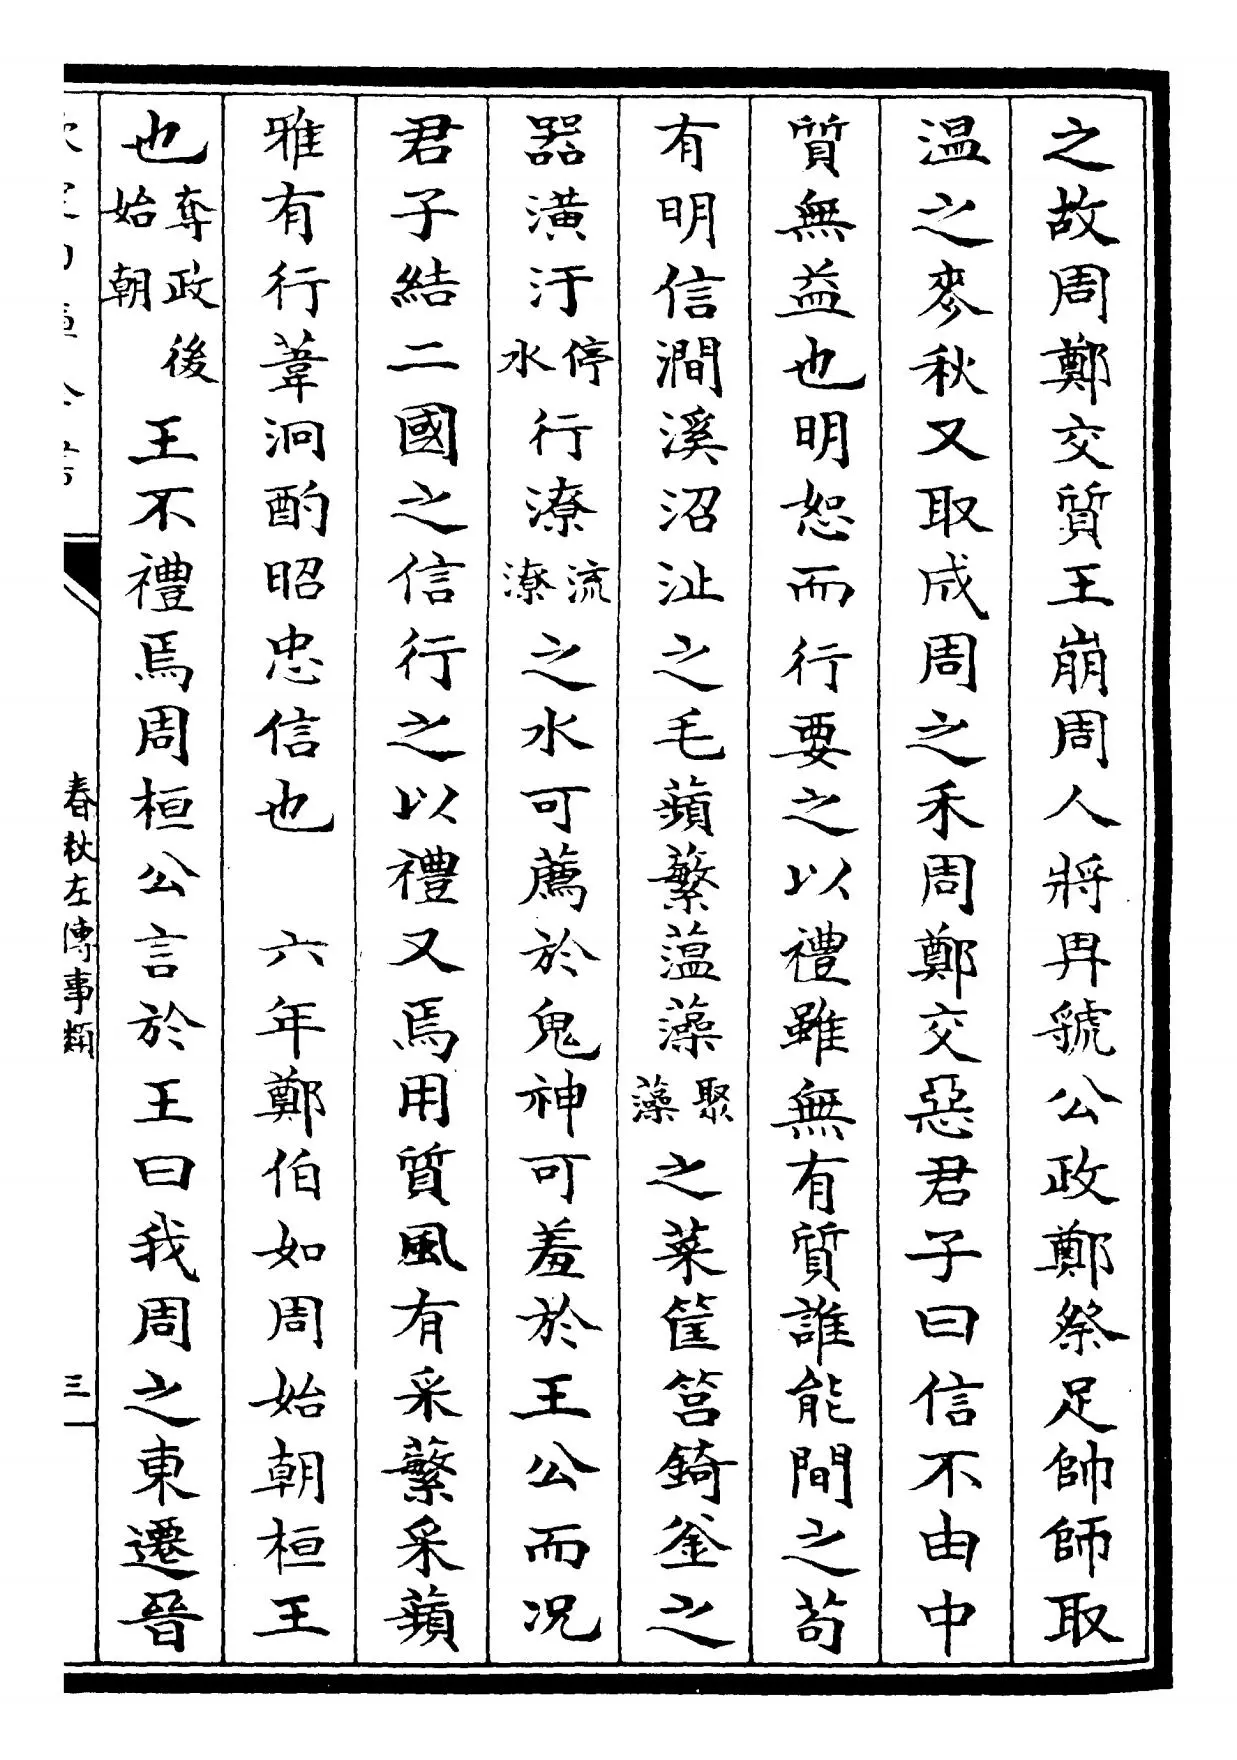 之故周鄭交質王崩周人將畀虢公政鄭祭足帥師取
温之麥秋又取成周之禾周鄭交惡君子曰信不由中
質無益也明恕而行要之以禮雖無有質誰能間之苟
有明信澗溪沼沚之毛蘋蘩薀藻聚藻之菜筐筥錡釜之
器潢汙停水行潦流潦之水可薦於鬼神可羞於王公而况
君子結二國之信行之以禮又焉用質風有采蘩采蘋
雅有行葦泂酌昭忠信也 六年鄭伯如周始朝桓王
也奪政後始朝 王不禮焉周桓公言於王曰我周之東遷晉
春秋左傳事類
三